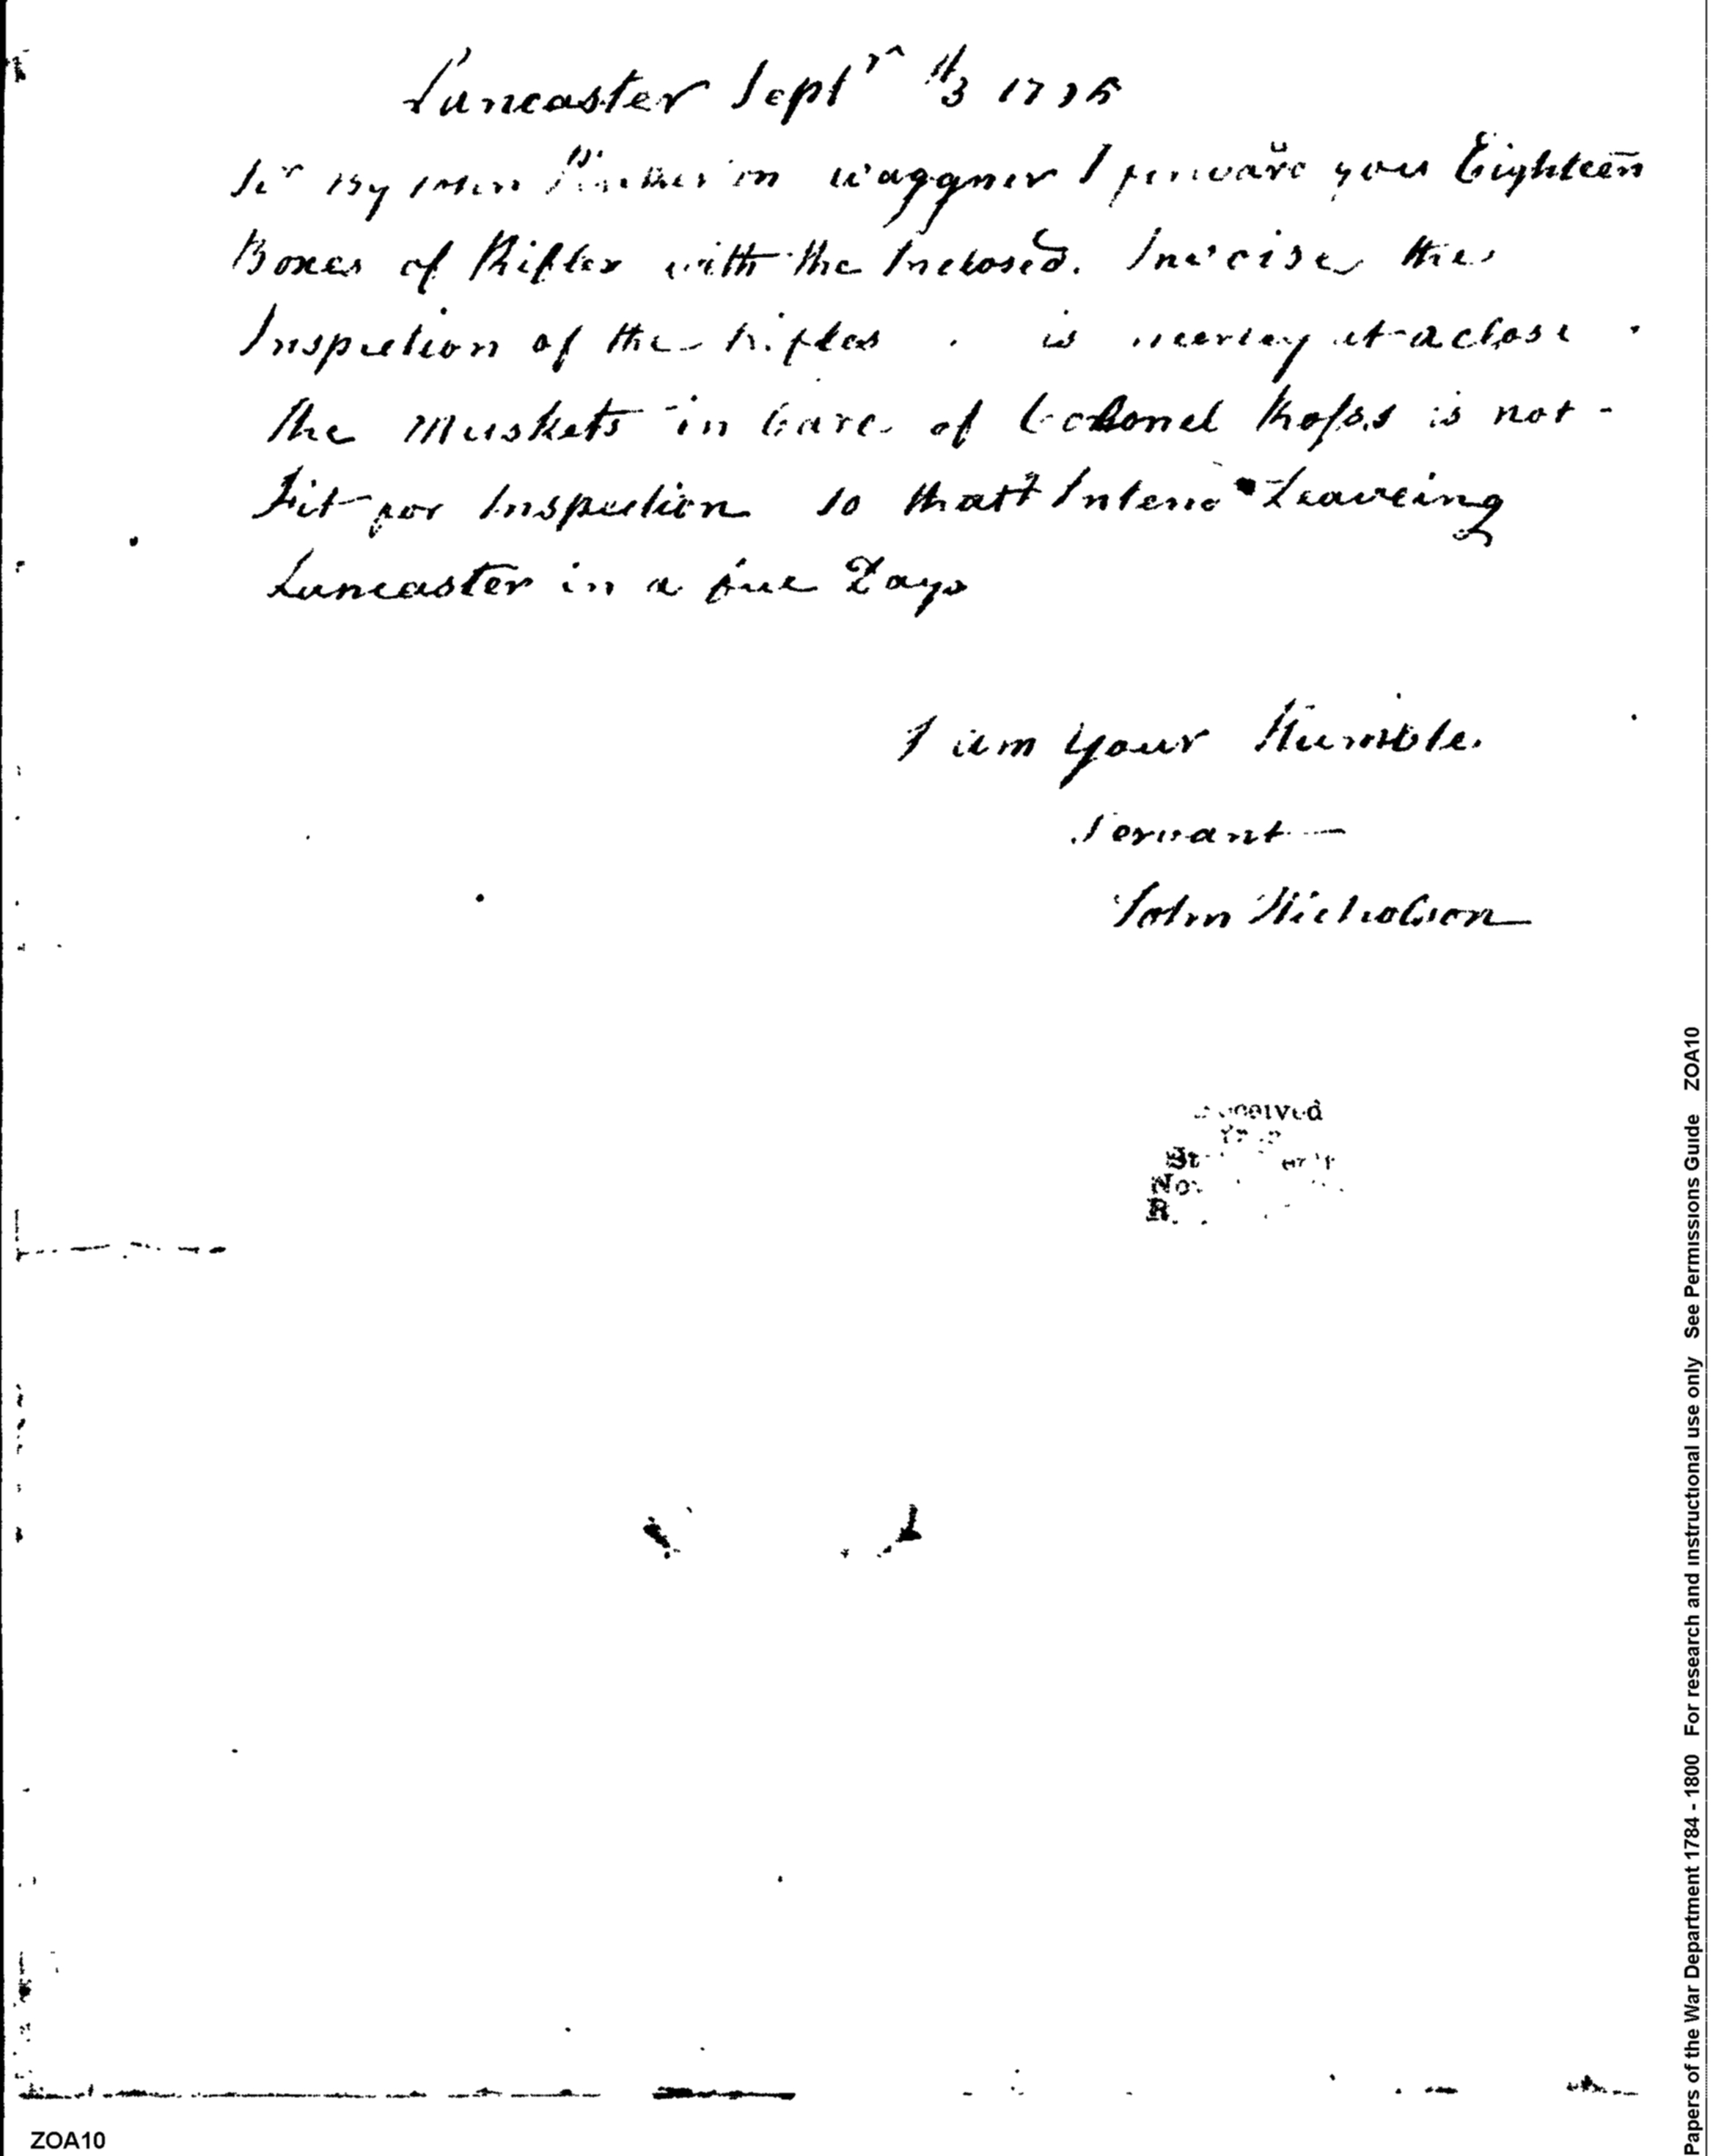 Lancaster Septr
Sir By John waggner I forward you Eighteen
Boxes of Rifles with the Inclosed. Invoise the
Inspection of the Rifles is neerley at a close
The Muskets in Care of Colonel is not
Fit for Inspection so that I Intend Leaveing
Lancaster in a fue Days
I am Your Humble
Servant
John Nicholson
Received
ZOA10
Papers of the War Department 1784 - 1800 For research and instructional use only See Permissions Guide ZOA10